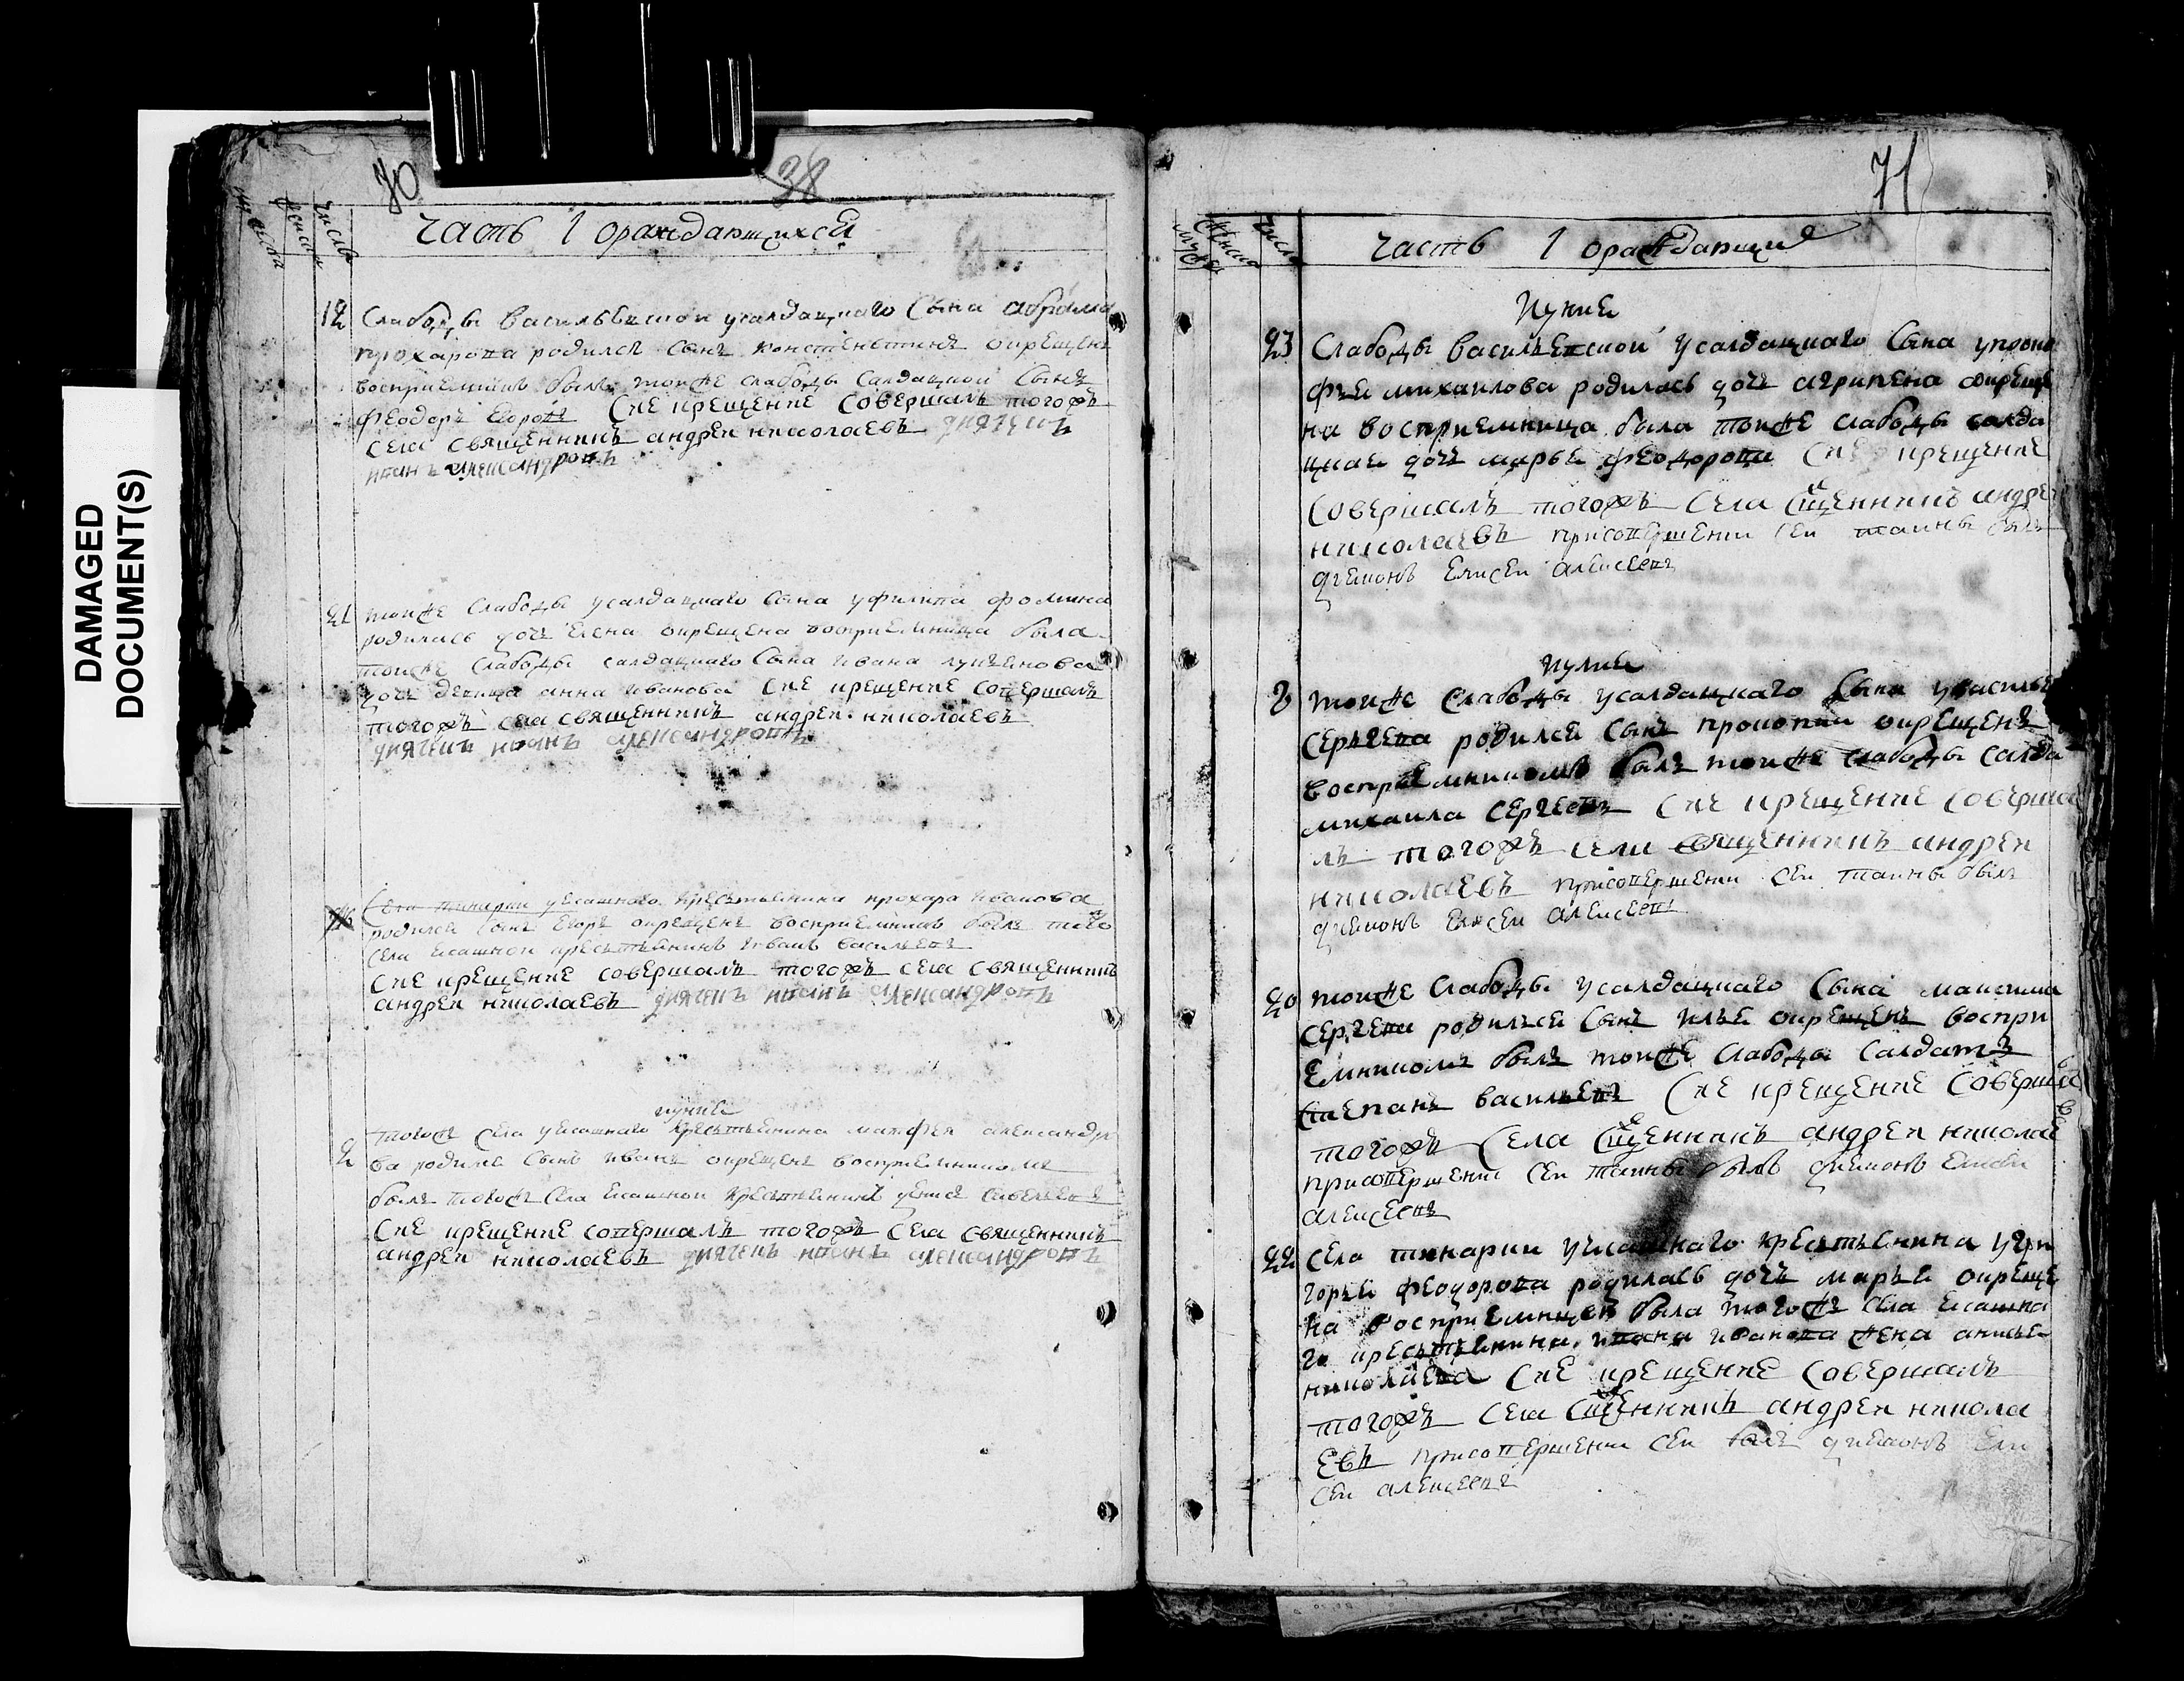 DAMAGED
DOCUMENT(S)
70
38
числа
часть 1 ораждающихсѧ
12
Слабоды васильевской усалдацкаго сына абрама
прохарова родилсѧ сынъ констенътинъ окрещенъ
восприемникъ былъ тойже слабоды салдацкой сынъ
феодоръ Сие крещение совершалъ тогожъ
села священникъ андреи николаевъ дьячекъ
иванъ александровъ
21
тойже слабоды усалдацкаго сына уфилипа фомина
родилась дочь елена окрещена восприемница была
тойже слабоды салдацкаго сына ивана
дочь девица анна иванова Сие крещение совершалъ
тогожъ села священникъ андреи николаевъ
дьячекъ иванъ александровъ
села уясашнаго крестьѧнина прохара иванова
родилсѧ сынъ егоръ окрещенъ восприемникъ былъ того
села ясашной крестьѧнинъ иванъ васильевъ
Сие крещение совершалъ тогожъ села священникъ
андреи николаевъ дьячекъ иванъ александровъ
иуниѧ
2
тогоже села уясашнаго крестьѧнина матфеѧ александро
ва родилсѧ сынъ иванъ окрещенъ восприемникомъ
былъ тогожъ села ясашной крестьѧнинъ
Сие крещение совершалъ тогожъ села священникъ
андреи николаевъ дьячекъ иванъ александровъ
71
числа
часть 1 ораждающиѧ
Иуниѧ
23
Слабоды васильевской усалдацкаго сына упроко
фьѧ михаилова родилась дочь агрипена окреще
на восприемница была тойже слабоды салда
цкаѧ дочь марьѧ феодорова Сие крещение
совершалъ тогожъ села сщенникъ андреи
николаевъ присовершении сей таины былъ
диаконъ елисеи алексеевъ
Иулиѧ
8
тойже слабоды усалдацкаго сына увасильѧ
сергеева родилсѧ сынъ прокопии окрещенъ
восприемникомъ былъ тойже слабоды салда
михаила сергеевъ Сие крещение соверша
лъ тогожъ села священникъ андреи
николаевъ присовершении сей таины былъ
диаконъ елисеи алексеевъ
20
тойже слабоды усалдацкаго сына максима
сергеева родилъсѧ сынъ ильѧ окрещенъ воспри
емникомъ былъ тойже слабоды салдатъ
степанъ васильевъ Сие крещение соверша
тогожъ села сщенникъ андреи никола
присовершении сей таины былъ диаконъ елисеи
алексеевъ
22
села уясашнаго крестьѧнина угри
горьѧ феодорова родилась дочь марьѧ окреще
на восприемницей была тогоже села ясашна
го крестьѧнина ивана иванова жена
николаева Сие крещение совершалъ
тогожъ села сщенникъ андреи никола
евъ присовершении сей былъ диаконъ ели
сеи алексеевъ